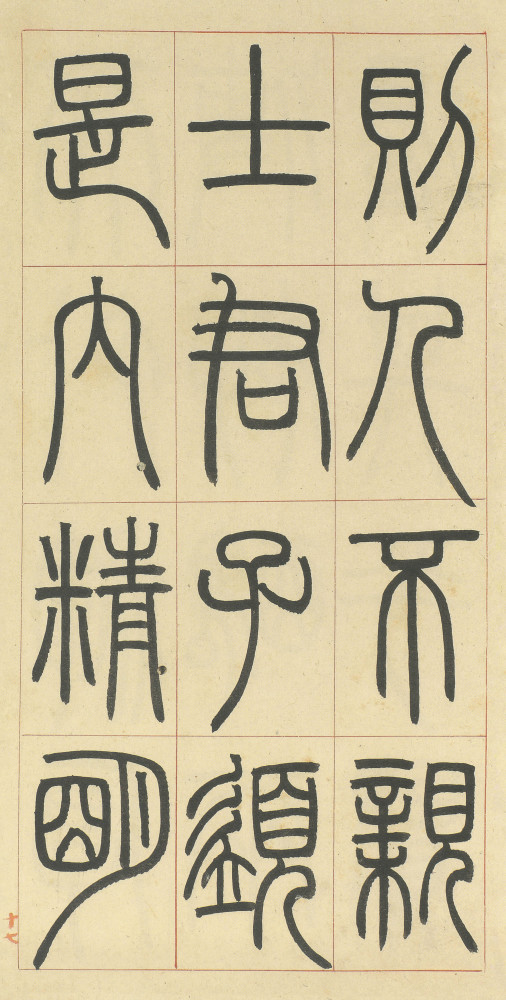 則人不親
士君子須
是內精明
十七